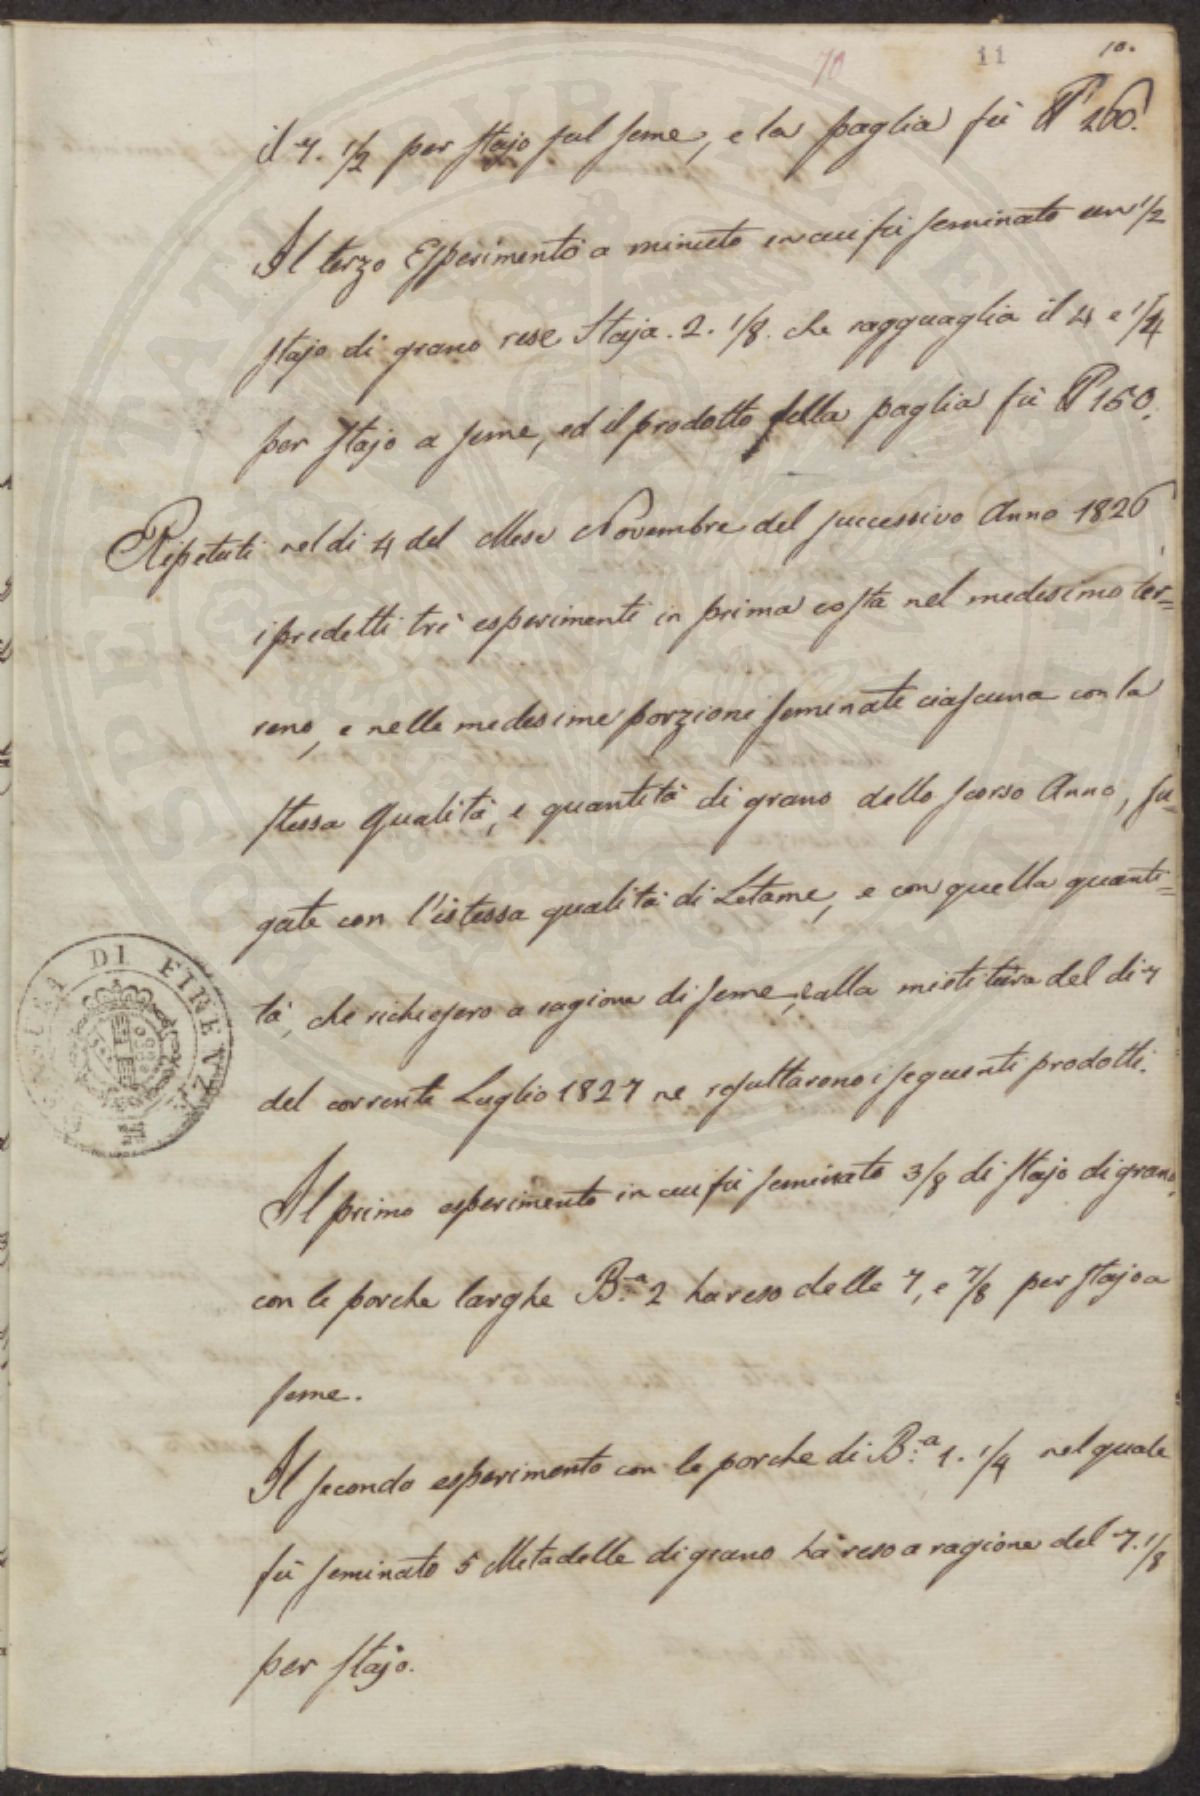 70 11 10.
il 7. 1/2 per stajo sul seme, e la paglia fù ₶ 260.
Il terzo Esperimento a minuto in cui fù seminato un 1/2
stajo di grano rese Staja. 2. 1/8. che ragguaglia il 4 e 1/4
per stajo a seme, ed il prodotto della paglia fù ₶ 160.
Repetuti nel di 4 del Mese Novembre del successivo Anno 1826
i predetti trè esperimenti in prima costa nel medesimo ter=
reno, e nelle medesime porzioni seminate ciascuna con la
stessa qualità, e quantità di grano dello scorso Anno, fu=
gate con l'istessa qualità di Letame, e con quella quanti=
tà, che richiesero a ragione di seme, e alla mietitura del di 7
del corrente Luglio 1827 ne resultarono i seguenti prodotti.
Il primo esperimento in cui fù seminato 3/8 di stajo di grano,
con le porche larghe B.a 2 ha reso delle 7, e 7/8 per stajo a
seme.
Il secondo esperimento con le porche di B.a 1. 1/4 nel quale
fù seminato 5 Metadelle di grano ha reso a ragione del 7. 1/8
per stajo.
DI FIRENZE